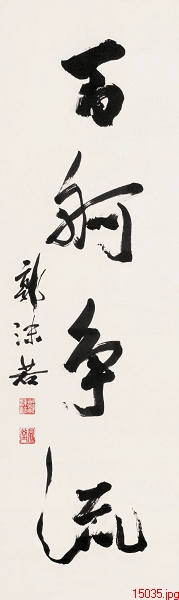 百舸争流
郭沫若
15035.jpg